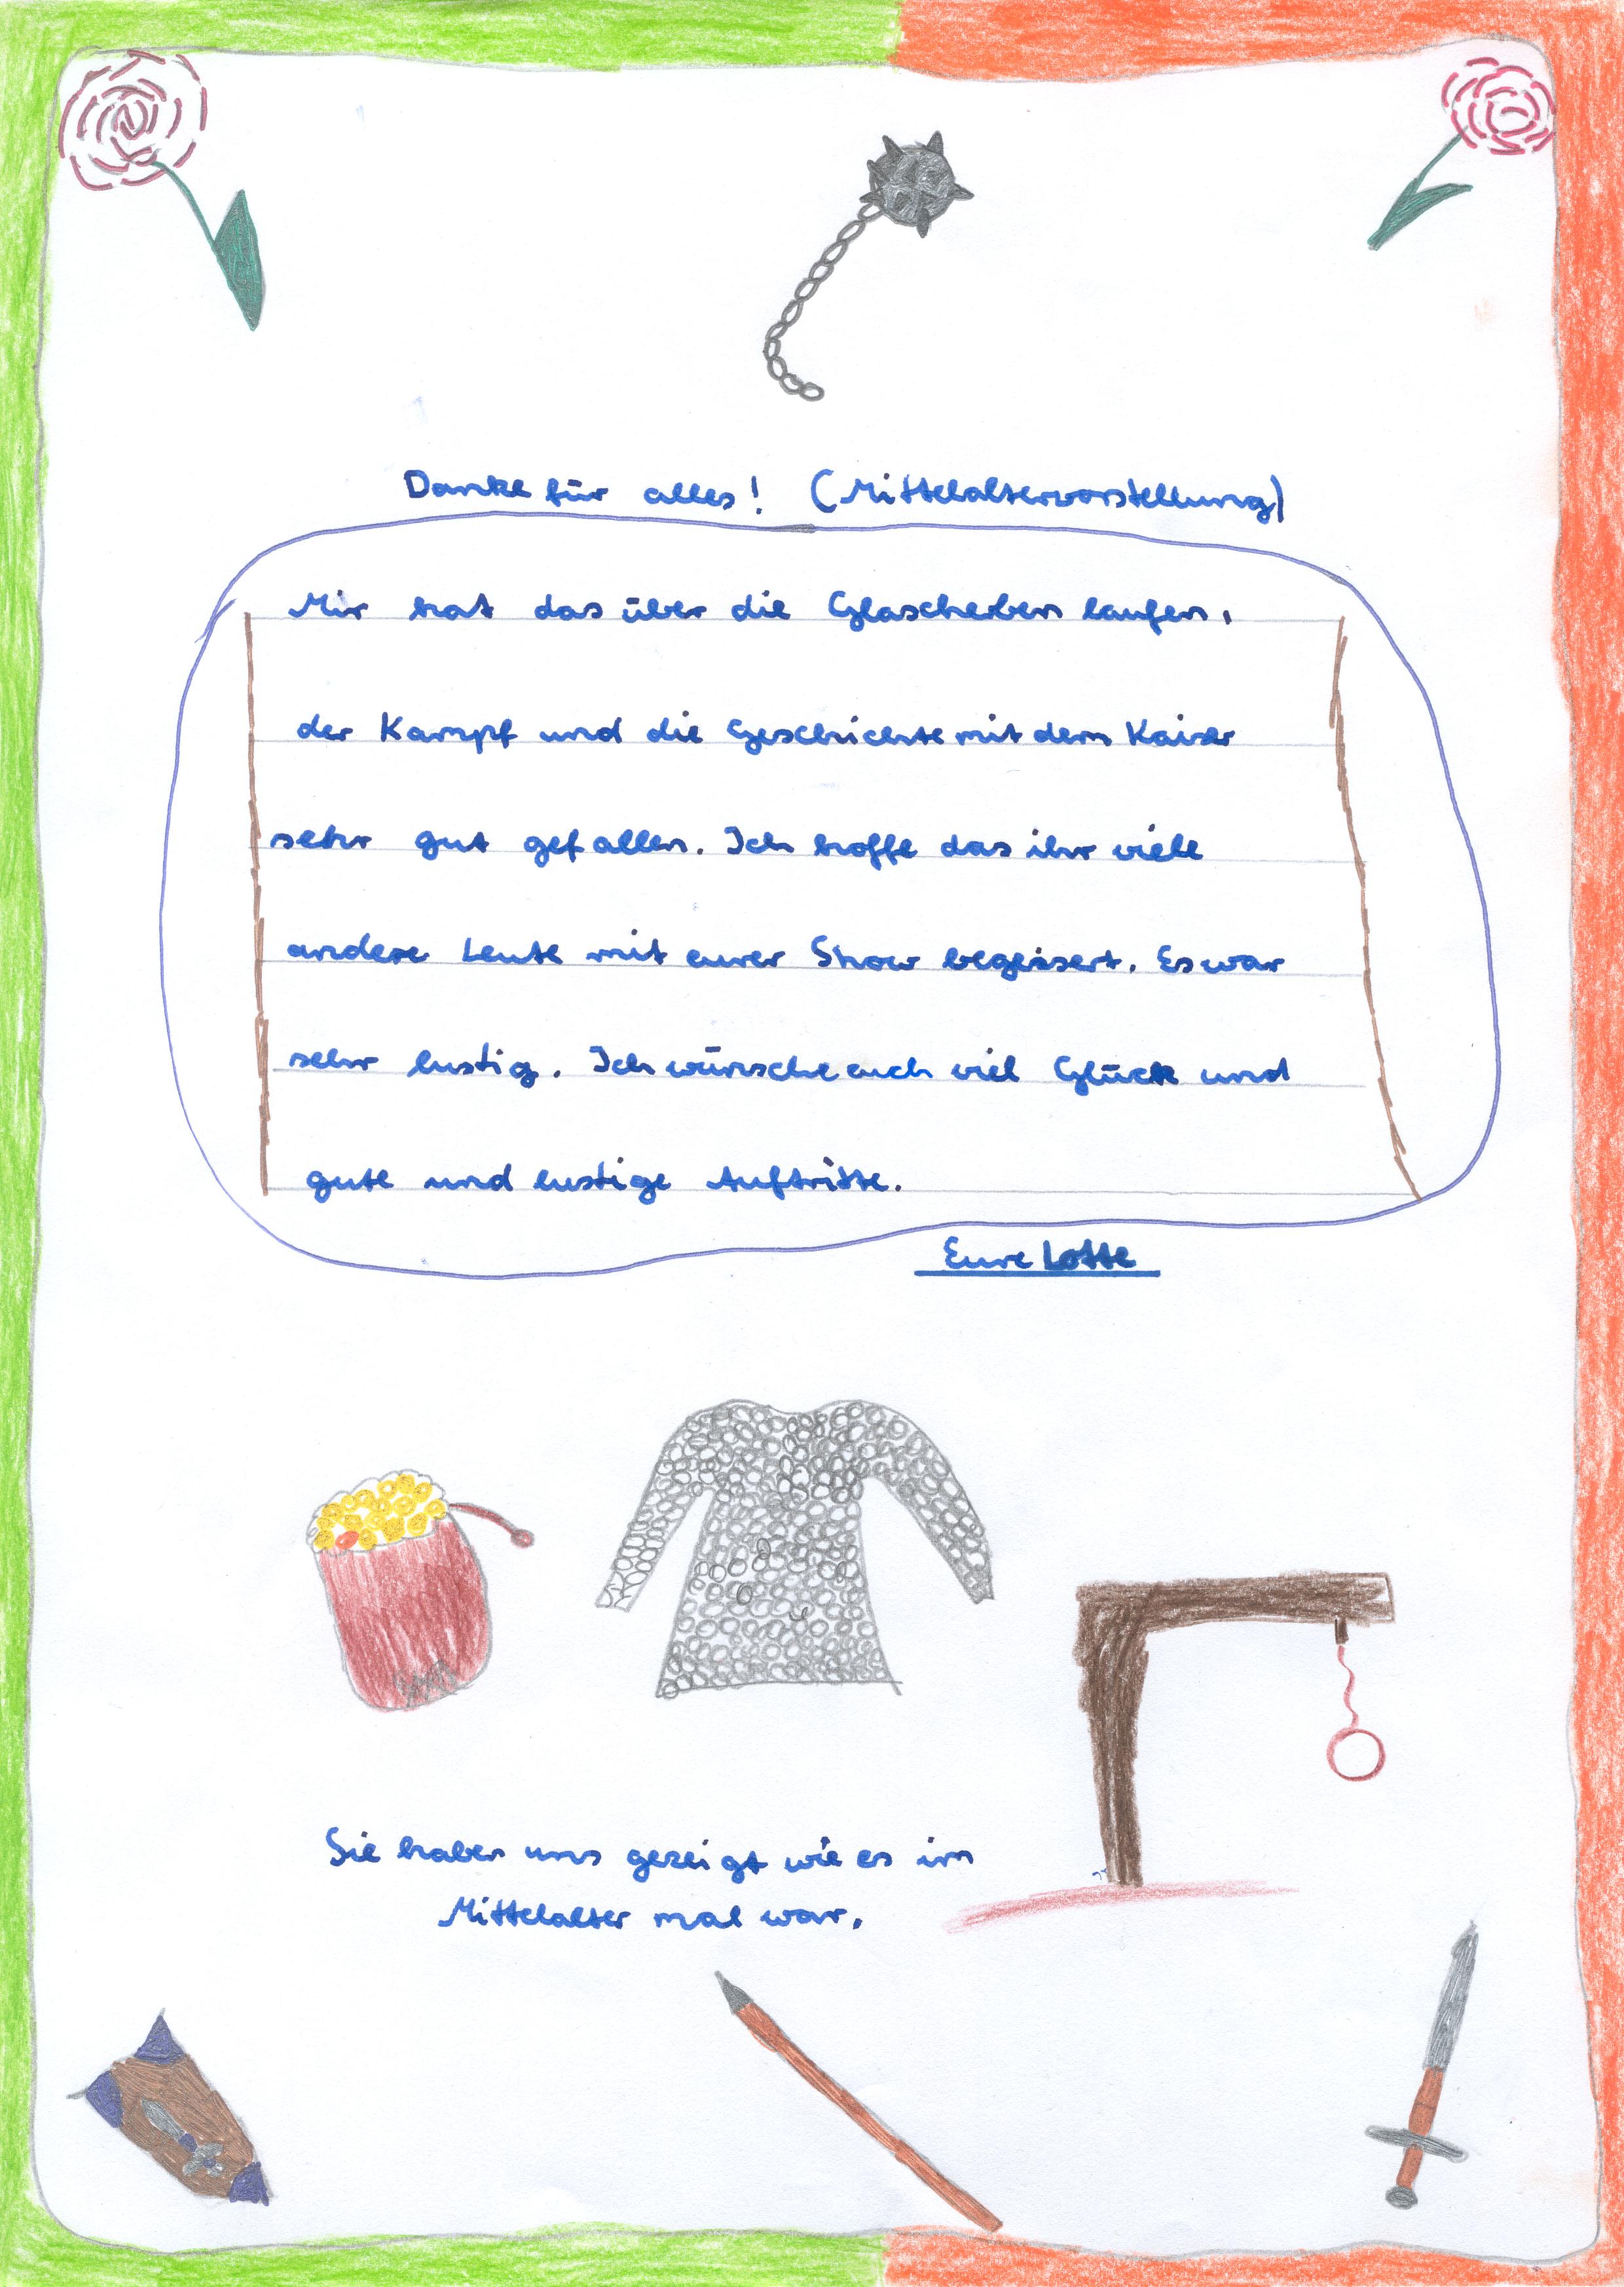 Danke für alles! (Mittelaltervorstellung)
Mir hat das über die Glascherben laufen,
der Kampf und die Geschichte mit dem Kaiser
sehr gut gefallen. Ich hoffe das ihr viele
andere Leute mit eurer Show begeissert. Es war
sehr lustig. Ich wünsche euch viel Glück und
gute und lustige Auftritte.
Eure Lotte
Sie haben uns gezeigt wie es im
Mittelalter mal war.